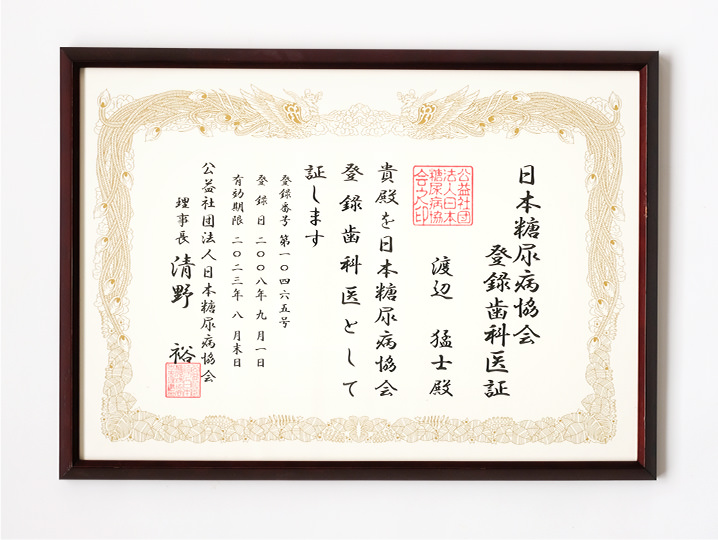 日本糖尿病協会
登録歯科医証
公益社団
法人日本
糖尿病協
会之印
渡辺 猛士殿
貴殿を日本糖尿病協会
登録歯科医として
証します
登録番号 第一〇四六五号
登録日 二〇〇八年 九月一日
有効期限 二〇二三年 八月末日
公益社団法人日本糖尿病協会
理事長 清野 裕